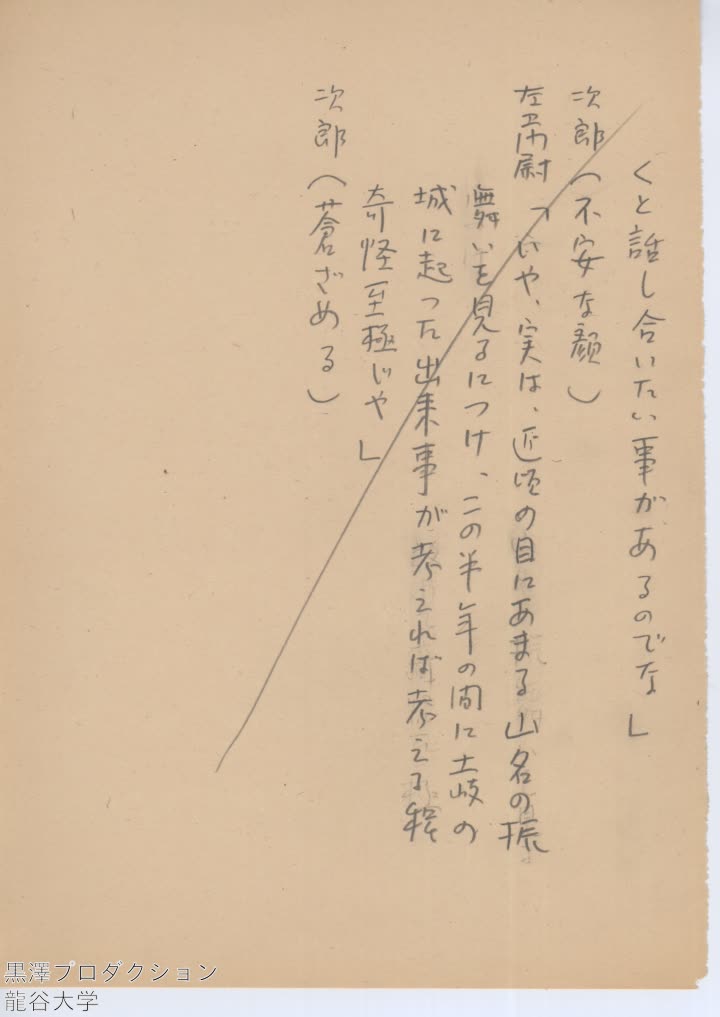 くと話し合いたい事があるのでな」
次郎(不安な顔)
左衛尉「いや、実は、近頃の目にあまる山名の振
舞いを見るにつけ、この半年の間に土岐の
城に起った出来事が考えれば考える程
奇怪至極じや」
次郎(蒼ざめる)
黒澤プロダクション
龍谷大学